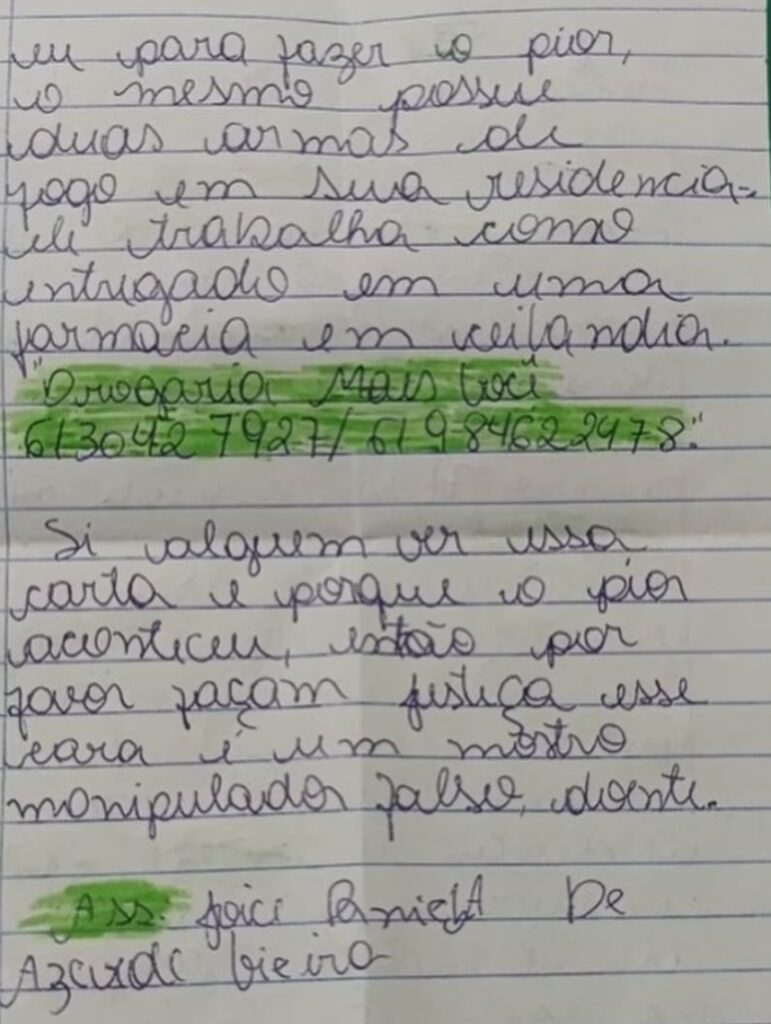 eu para fazer o pior,
o mesmo possue
duas armas de
fogo em sua residencia-
ele trabalha como
entregado em uma
farmacia em ceilandia.
"Drogaria Mais Você
613042 7927/ 61984622478."
Si alguem ver essa
carta e porque o pior
aconteceu, então por
favor façam justiça esse
cara é um mostro
manipulador falso, doente.
Ass. Joice Daniela De
Azeixde Vieira